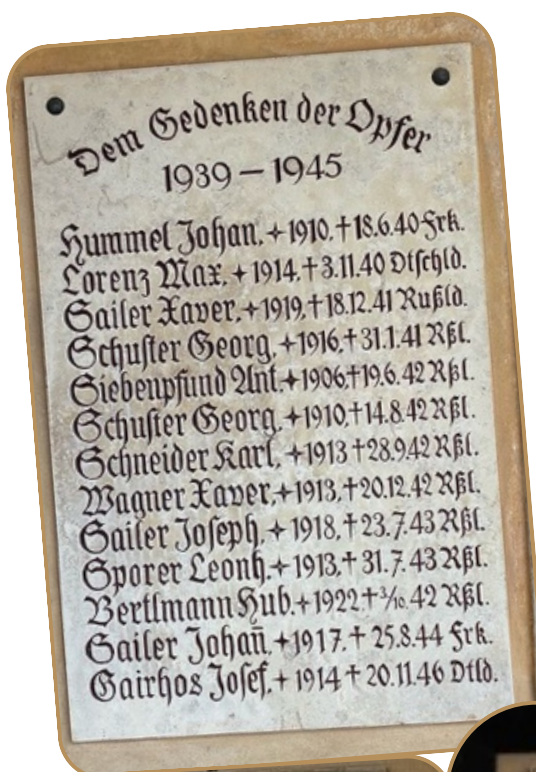 Dem Gedenken der Opfer
1939 – 1945
Hummel Johan. ✦ 1910. † 18.6.40 Frk.
Lorenz Max. ✦ 1914. † 3.11.40 Dtschld.
Sailer Xaver. ✦ 1919. † 18.12.41 Rußld.
Schuster Georg. ✦ 1916. † 31.1.41 Rßl.
Siebenpfund Ant. ✦ 1906. † 19.6.42 Rßl.
Schuster Georg. ✦ 1910. † 14.8.42 Rßl.
Schneider Karl. ✦ 1913 † 28.9.42 Rßl.
Wagner Xaver. ✦ 1913. † 20.12.42 Rßl.
Sailer Joseph. ✦ 1918. † 23.7.43 Rßl.
Sporer Leonh. ✦ 1913. † 31.7.43 Rßl.
Bertlmann Hub. ✦ 1922 † 3/10.42 Rßl.
Sailer Johan̄. ✦ 1917. † 25.8.44 Frk.
Gairhos Josef. ✦ 1914 † 20.11.46 Dtld.